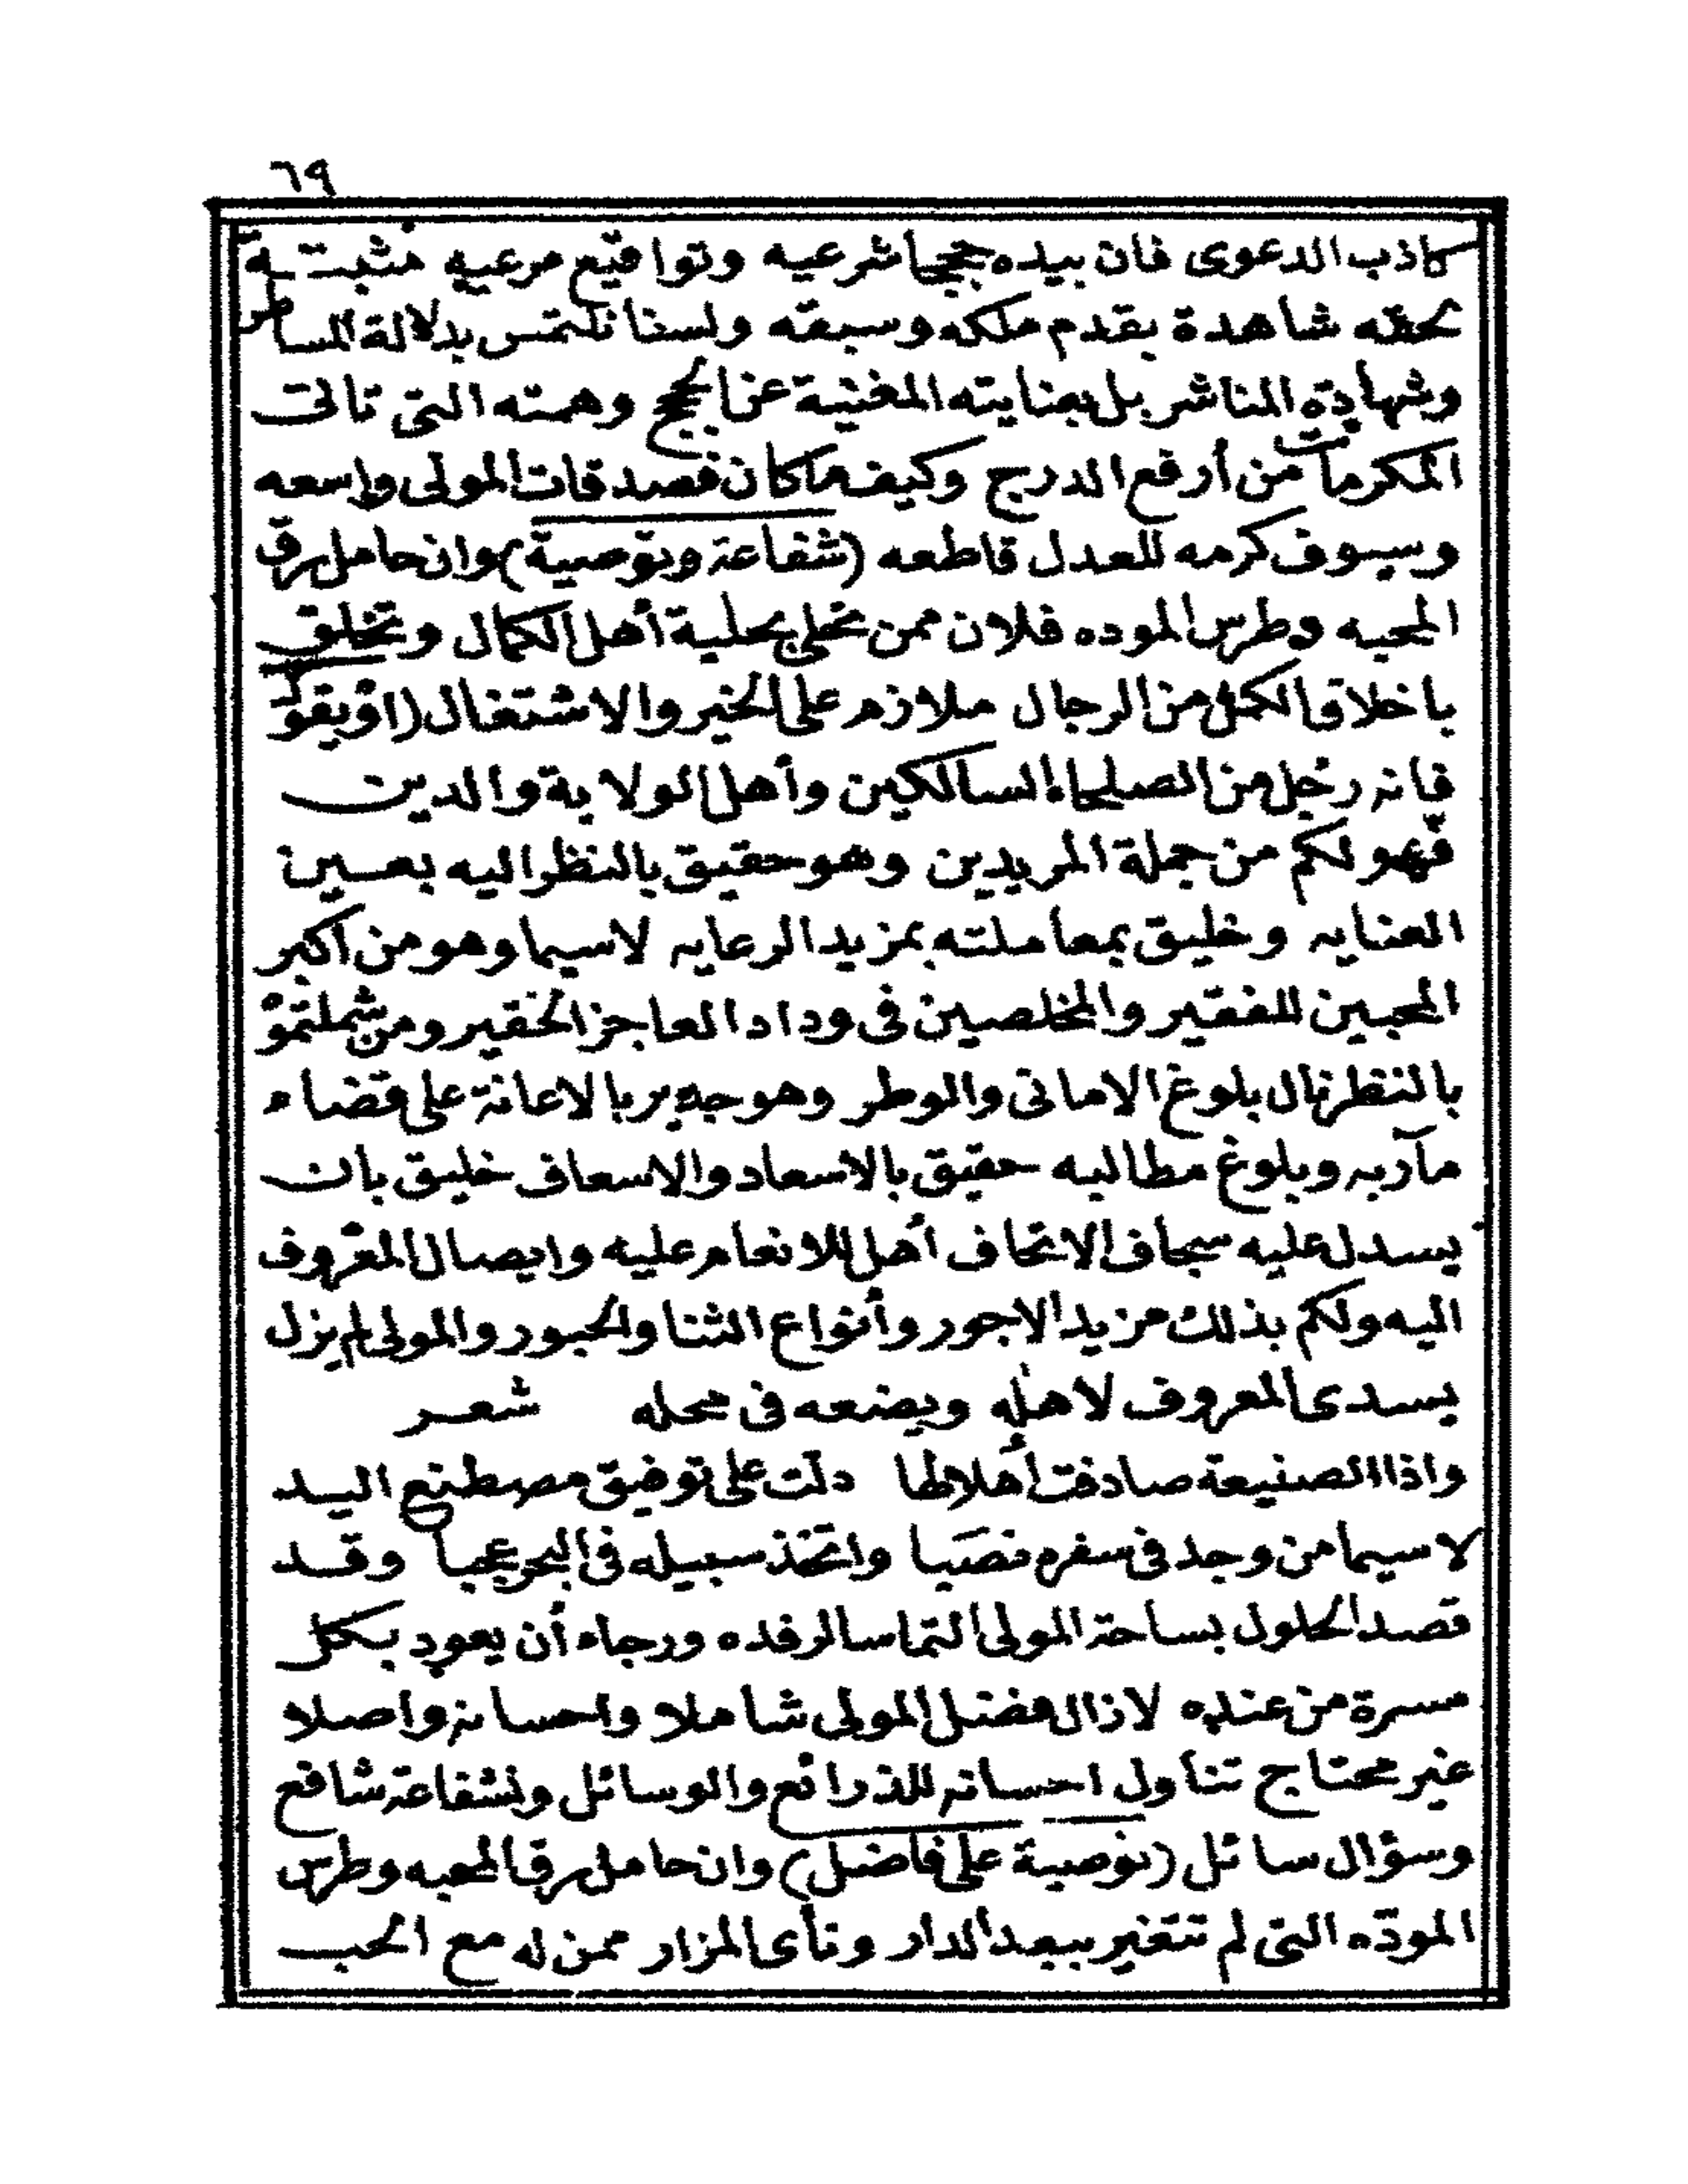 ٦٩
كاذب الدعوى فان بيده حججا شرعيه وتواقيع مرعيه مثبتـة
بحقه شاهدة بقدم ملكه وسبقه ولسنا نلتمس بدلالة المساطر
وشهادة المناشر بل بعنايته المغنية عن الحجج وهمته التى نالت
المكرمات من أرفع الدرج وكيف ما كان فصدقات المولى واسعه
وسيوف كرمه للعدل قاطعه (شفاعة وتوصية) وان حامل رق
المحبه وطرس الموده فلان ممن تحلى بحلية أهل الكمال وتخلق
باخلاق الكمل من الرجال ملازم على الخير والاشتغال (أو يقو
فانه رجل من الصلحاء السالكين وأهل الولاية والدين
فهو لكم من جملة المريدين وهو حقيق بالنظر اليه بعين
العنايه وخليق بمعاملته بمزيد الرعايه لاسيما وهو من أكبر
المحبين للفقير والمخلصين فى وداد العاجز الحقير ومن شملتمو
بالنظر نال بلوغ الامانى والوطر وهو جدير بالاعانة على قضاء
مآربه وبلوغ مطالبه حقيق بالاسعاد والاسعاف خليق بان
يسدل عليه سجاف الاتحاف أهل للانعام عليه وايصال المعروف
اليه ولكم بذلك مزيد الاجور وأنواع الثنا والحبور والمولى لم يزل
يسدى المعروف لاهله ويضعه فى محله شعر
واذا الصنيعة صادفت أهلا لها دلت على توفيق مصطنع اليد
لاسيما من وجد فى سفره نصبا واتخذ سبيله فى البحر عجبا وقد
قصد الحلول بساحة المولى التماسا لرفده ورجاء أن يعود بكل
مسرة من عنده لازال فضل المولى شاملا واحسانه واصلا
غير محتاج تناول احسانه للذرائع والوسائل ولشفاعة شافع
وسؤال سائل (توصية على فاضل) وان حامل رق المحبه وطرس
الموده التى لم تتغير ببعد الدار ونأى المزار ممن له مع الحب